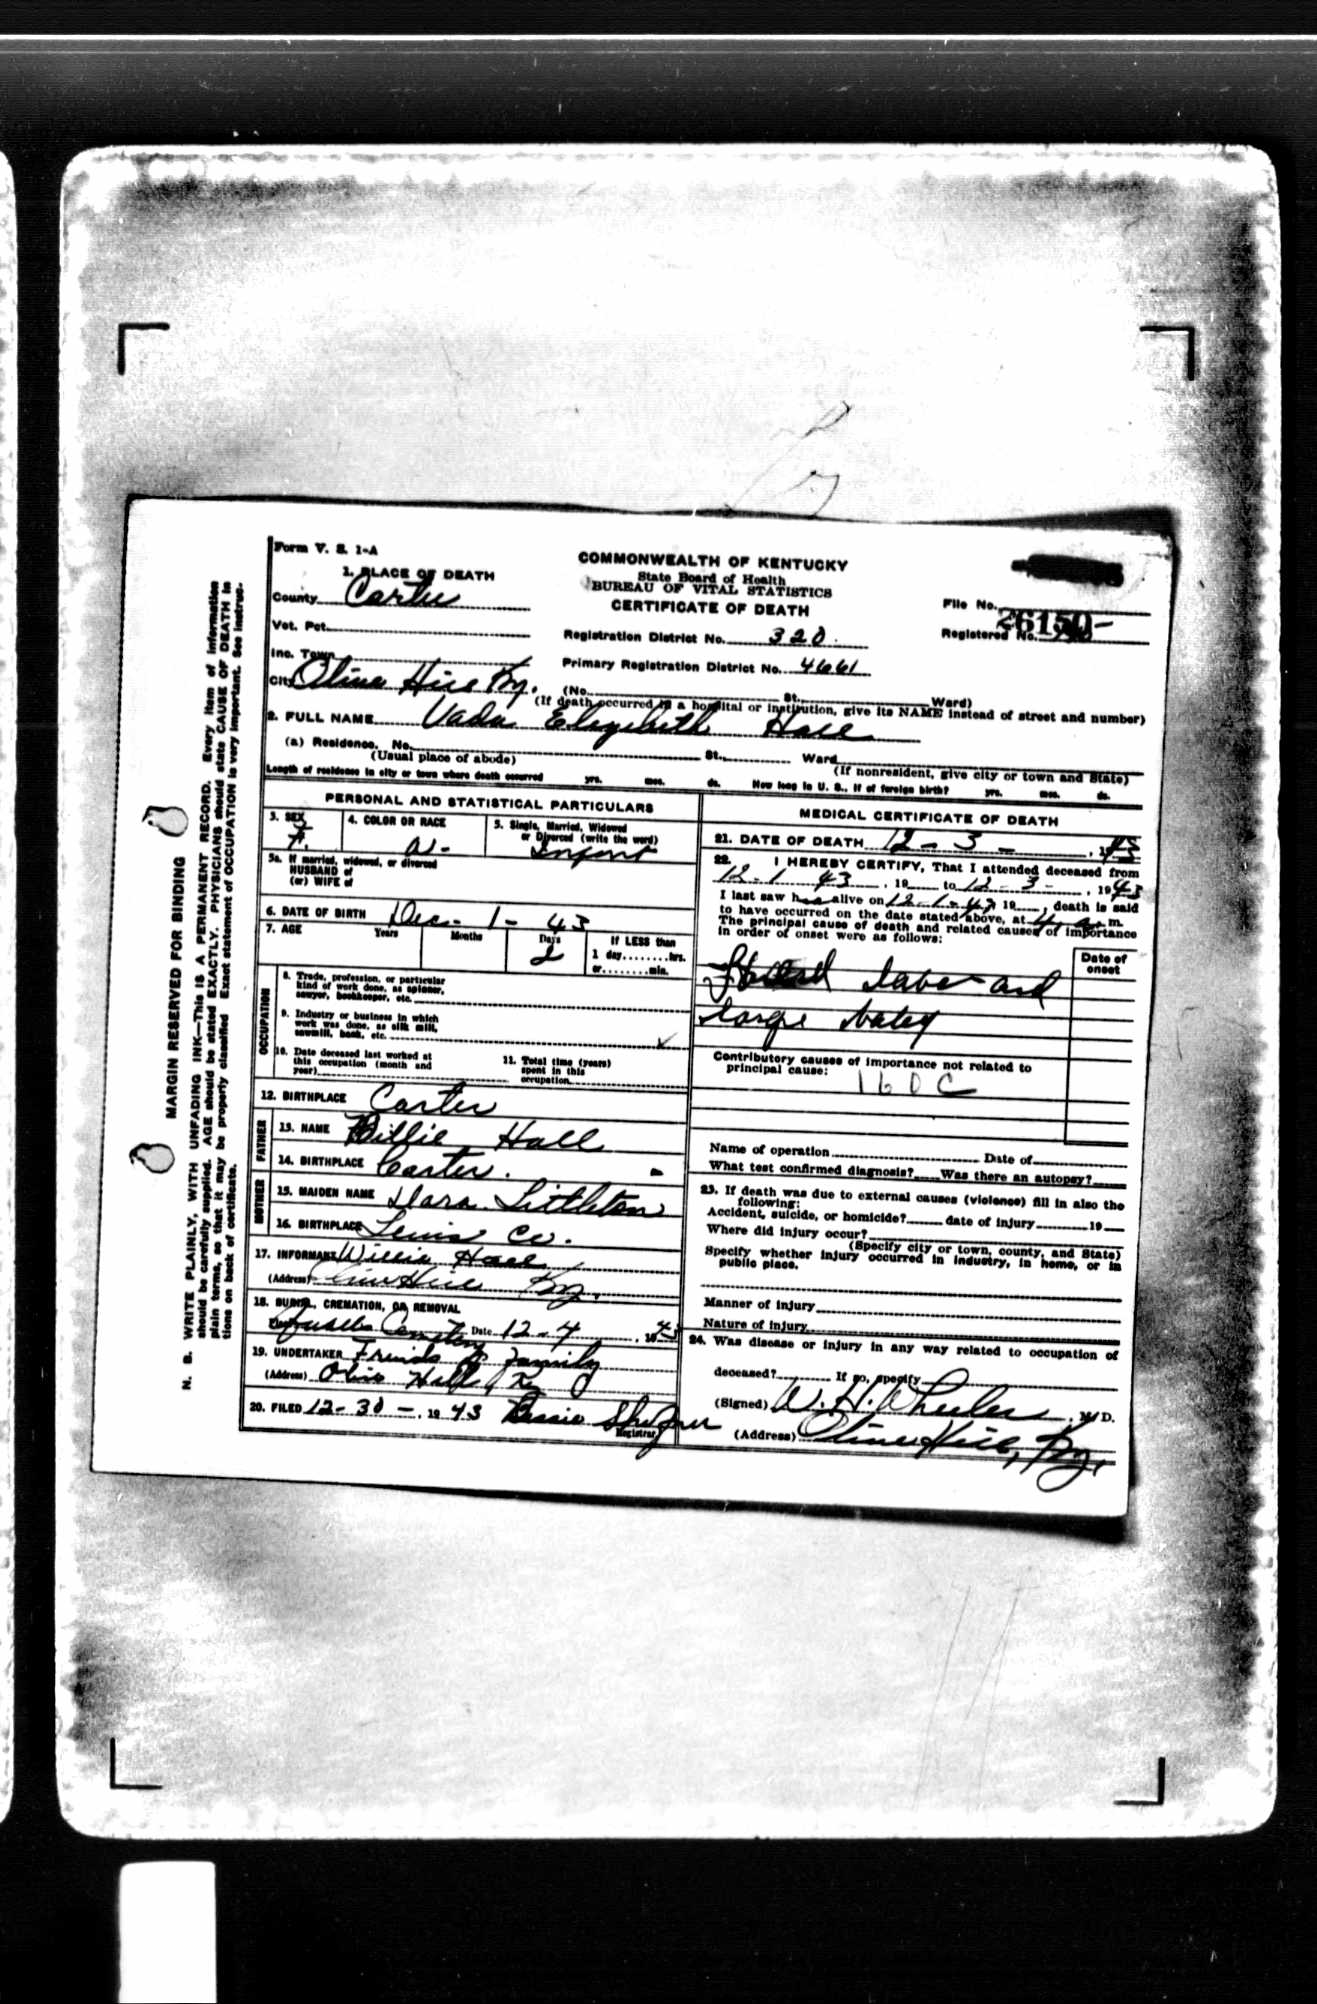 Form V. S. 1-A
1. PLACE OF DEATH
County Carter
Vot. Pct.
Inc. Town
City Olive Hill Ky.
COMMONWEALTH OF KENTUCKY
State Board of Health
BUREAU OF VITAL STATISTICS
CERTIFICATE OF DEATH
Registration District No. 320
Primary Registration District No. 4661
File No.
26150
Registered No.
(No. St., Ward)
(If death occurred in a hospital or institution, give its NAME instead of street and number)
2. FULL NAME Vada Elizabeth Hall
(a) Residence. No. St., Ward
(Usual place of abode) (If nonresident, give city or town and State)
Length of residence in city or town where death occurred yrs. mos. ds. How long in U. S., if of foreign birth? yrs. mos. ds.
PERSONAL AND STATISTICAL PARTICULARS
3. SEX F.
4. COLOR OR RACE W-
5. Single, Married, Widowed
or Divorced (write the word)
Infant
5a. If married, widowed, or divorced
HUSBAND of
(or) WIFE of
6. DATE OF BIRTH Dec- 1- 43
7. AGE Years Months Days 2
If LESS than
1 day........hrs.
or........min.
OCCUPATION
8. Trade, profession, or particular
kind of work done, as spinner,
sawyer, bookkeeper, etc.
9. Industry or business in which
work was done, as silk mill,
sawmill, bank, etc.
10. Date deceased last worked at
this occupation (month and
year)
11. Total time (years)
spent in this
occupation
12. BIRTHPLACE Carter
FATHER
13. NAME Billie Hall
14. BIRTHPLACE Carter.
MOTHER
15. MAIDEN NAME Dara Littleton
16. BIRTHPLACE Lewis Co.
17. INFORMANT Willie Hall
(Address) Olive Hill Ky.
18. BURIAL, CREMATION, OR REMOVAL
Cemetery Date 12-4, 1943
19. UNDERTAKER Friends & Family
(Address) Olive Hill, Ky
20. FILED 12-30-, 1943 Bessie
Registrar
MEDICAL CERTIFICATE OF DEATH
21. DATE OF DEATH 12-3-, 1943
22. I HEREBY CERTIFY, That I attended deceased from
12-1 43, 19 to 12-3-, 1943
I last saw h alive on 12-1-43, 19, death is said
to have occurred on the date stated above, at 4 a. m.
The principal cause of death and related causes of importance
in order of onset were as follows:
Date of
onset
labor and
large baby
Contributory causes of importance not related to
principal cause:
160C
Name of operation Date of
What test confirmed diagnosis? Was there an autopsy?
23. If death was due to external causes (violence) fill in also the
following:
Accident, suicide, or homicide? date of injury 19
Where did injury occur?
(Specify city or town, county, and State)
Specify whether injury occurred in industry, in home, or in
public place.
Manner of injury
Nature of injury
24. Was disease or injury in any way related to occupation of
deceased? If so, specify
(Signed) W. H. Wheeler, M. D.
(Address) Olive Hill, Ky.
MARGIN RESERVED FOR BINDING
N. B. WRITE PLAINLY, WITH UNFADING INK—THIS IS A PERMANENT RECORD. Every item of information
should be carefully supplied. AGE should be stated EXACTLY. PHYSICIANS should state CAUSE OF DEATH in
plain terms, so that it may be properly classified. Exact statement of OCCUPATION is very important. See instruc-
tions on back of certificate.